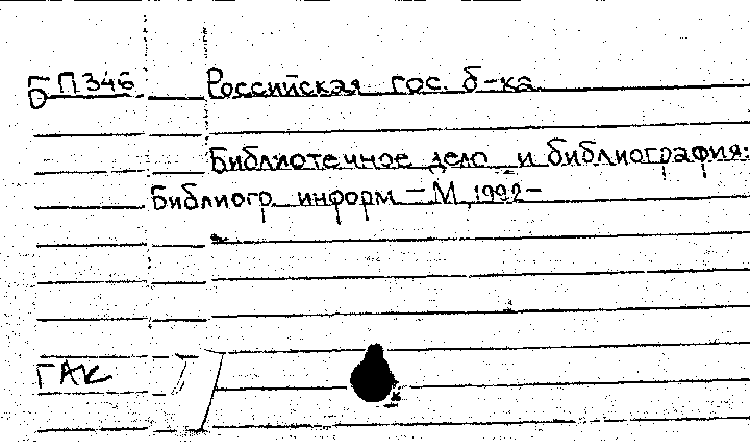 Б П346 Российская гос. б-ка.
Библиотечное дело и библиография:
Библиогр информ – М, 1992–
ГАК